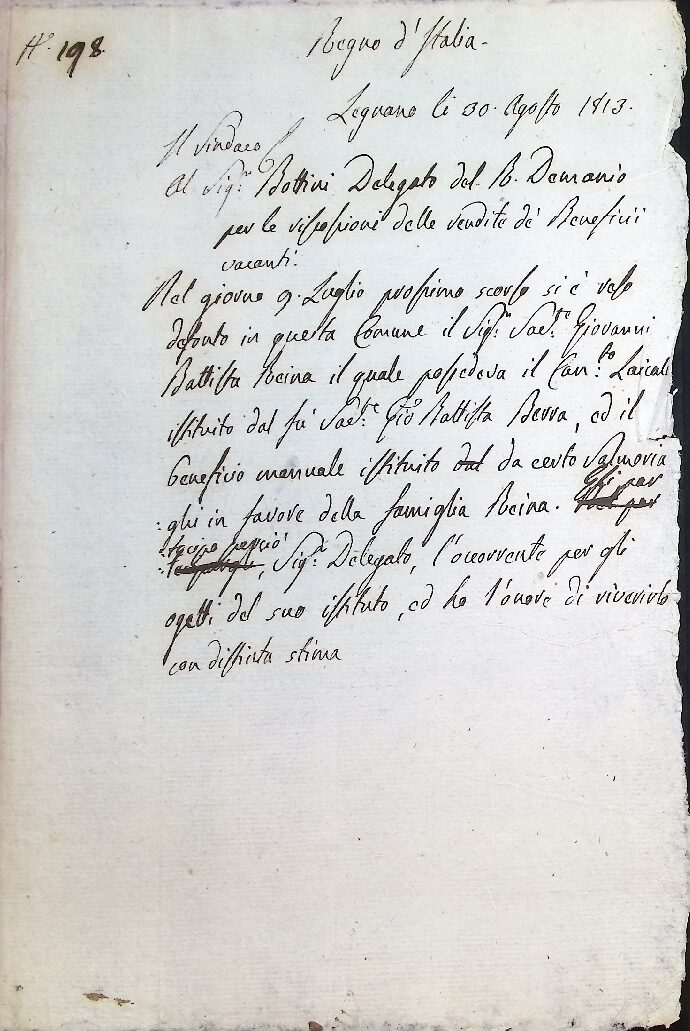 N.° 198.
Regno d'Italia.
Legnano li 30. Agosto 1813.
Il Sindaco
Al Sig.r Bottini Delegato del R. Demanio
per le disposizioni delle vendite de' Beneficii
vacanti.
Nel giorno 9. Luglio prossimo scorso si è reso
defonto in questa Comune il Sig.r Sac.te Giovanni
Battista Reina il quale possedeva il Can.to Laicale
istituito dal fù Sac.te Gio Battista Berra, ed il
beneficio mannale istituito dal da certo Salmoria
ghi in favore della famiglia Reina. Gli par
tecipo perciò
, Sig.r Delegato, l'occorrente per gli
ogetti del suo istituto, ed ho l'onore di riverirlo
con distinta stima